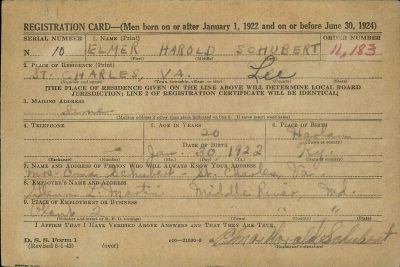 REGISTRATION CARD—(Men born on or after January 1, 1922 and on or before June 30, 1924)
SERIAL NUMBER 1. NAME (Print) ORDER NUMBER
10 ELMER HAROLD SCHUBERT 11,183
(First) (Middle) (Last)
2. PLACE OF RESIDENCE (Print)
ST. CHARLES, VA. Lee
(Number and street) (Town, township, village, or city) (County) (State)
[THE PLACE OF RESIDENCE GIVEN ON THE LINE ABOVE WILL DETERMINE LOCAL BOARD
JURISDICTION; LINE 2 OF REGISTRATION CERTIFICATE WILL BE IDENTICAL]
3. MAILING ADDRESS
Same
[Mailing address if other than place indicated on line 2. If same insert word same]
4. TELEPHONE 5. AGE IN YEARS 6. PLACE OF BIRTH
20 Harlan
DATE OF BIRTH (Town or county)
Jan. 30, 1922 Ky.
(Exchange) (Number) (Mo.) (Day) (Yr.) (State or country)
7. NAME AND ADDRESS OF PERSON WHO WILL ALWAYS KNOW YOUR ADDRESS
Mrs. Schubert St. Charles, Va.
8. EMPLOYER'S NAME AND ADDRESS
Glenn L. Martin Middle River, Md.
9. PLACE OF EMPLOYMENT OR BUSINESS
Plant 2 " " "
(Number and street or R. F. D. number) (Town) (County) (State)
I AFFIRM THAT I HAVE VERIFIED ABOVE ANSWERS AND THAT THEY ARE TRUE.
D. S. S. Form 1
(Revised 6-1-42) (over) Elmer Harold Schubert
(Registrant's signature)